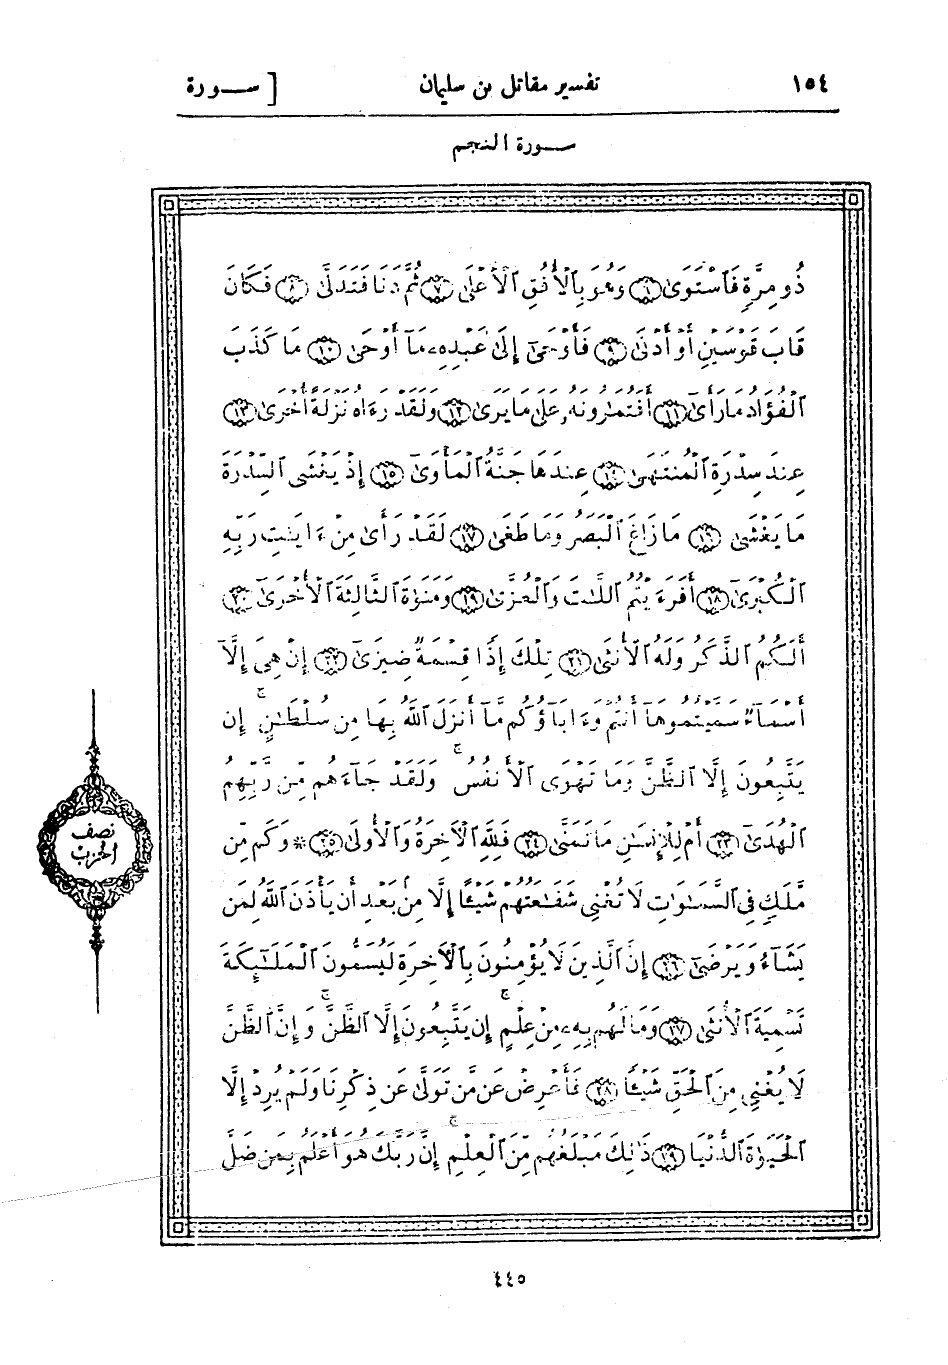 ١٥٤ تفسير مقاتل بن سليمان [ ســورة
ســورة النجم
ذُو مِرَّةٍ فَٱسْتَوَىٰ ٦ وَهُوَ بِٱلْأُفُقِ ٱلْأَعْلَىٰ ٧ ثُمَّ دَنَا فَتَدَلَّىٰ ٨ فَكَانَ
قَابَ قَوْسَيْنِ أَوْ أَدْنَىٰ ٩ فَأَوْحَىٰٓ إِلَىٰ عَبْدِهِۦ مَآ أَوْحَىٰ ١٠ مَا كَذَبَ
ٱلْفُؤَادُ مَا رَأَىٰٓ ١١ أَفَتُمَٰرُونَهُۥ عَلَىٰ مَا يَرَىٰ ١٢ وَلَقَدْ رَءَاهُ نَزْلَةً أُخْرَىٰ ١٣
عِندَ سِدْرَةِ ٱلْمُنتَهَىٰ ١٤ عِندَهَا جَنَّةُ ٱلْمَأْوَىٰٓ ١٥ إِذْ يَغْشَى ٱلسِّدْرَةَ
مَا يَغْشَىٰ ١٦ مَا زَاغَ ٱلْبَصَرُ وَمَا طَغَىٰ ١٧ لَقَدْ رَأَىٰ مِنْ ءَايَٰتِ رَبِّهِ
ٱلْكُبْرَىٰٓ ١٨ أَفَرَءَيْتُمُ ٱللَّٰتَ وَٱلْعُزَّىٰ ١٩ وَمَنَوٰةَ ٱلثَّالِثَةَ ٱلْأُخْرَىٰٓ ٢٠
أَلَكُمُ ٱلذَّكَرُ وَلَهُ ٱلْأُنثَىٰ ٢١ تِلْكَ إِذًا قِسْمَةٌ ضِيزَىٰٓ ٢٢ إِنْ هِىَ إِلَّآ
أَسْمَآءٌ سَمَّيْتُمُوهَآ أَنتُمْ وَءَابَآؤُكُم مَّآ أَنزَلَ ٱللَّهُ بِهَا مِن سُلْطَٰنٍ ۚ إِن
يَتَّبِعُونَ إِلَّا ٱلظَّنَّ وَمَا تَهْوَى ٱلْأَنفُسُ ۖ وَلَقَدْ جَآءَهُم مِّن رَّبِّهِمُ
ٱلْهُدَىٰٓ ٢٣ أَمْ لِلْإِنسَٰنِ مَا تَمَنَّىٰ ٢٤ فَلِلَّهِ ٱلْـَٔاخِرَةُ وَٱلْأُولَىٰ ٢٥ * وَكَم مِّن
مَّلَكٍ فِى ٱلسَّمَٰوَٰتِ لَا تُغْنِى شَفَٰعَتُهُمْ شَيْـًٔا إِلَّا مِنۢ بَعْدِ أَن يَأْذَنَ ٱللَّهُ لِمَن
يَشَآءُ وَيَرْضَىٰٓ ٢٦ إِنَّ ٱلَّذِينَ لَا يُؤْمِنُونَ بِٱلْـَٔاخِرَةِ لَيُسَمُّونَ ٱلْمَلَٰٓئِكَةَ
تَسْمِيَةَ ٱلْأُنثَىٰ ٢٧ وَمَا لَهُم بِهِۦ مِنْ عِلْمٍ ۖ إِن يَتَّبِعُونَ إِلَّا ٱلظَّنَّ ۖ وَإِنَّ ٱلظَّنَّ
لَا يُغْنِى مِنَ ٱلْحَقِّ شَيْـًٔا ٢٨ فَأَعْرِضْ عَن مَّن تَوَلَّىٰ عَن ذِكْرِنَا وَلَمْ يُرِدْ إِلَّا
ٱلْحَيَوٰةَ ٱلدُّنْيَا ٢٩ ذَٰلِكَ مَبْلَغُهُم مِّنَ ٱلْعِلْمِ ۚ إِنَّ رَبَّكَ هُوَ أَعْلَمُ بِمَن ضَلَّ
نصف
الحزب
٤٤٥